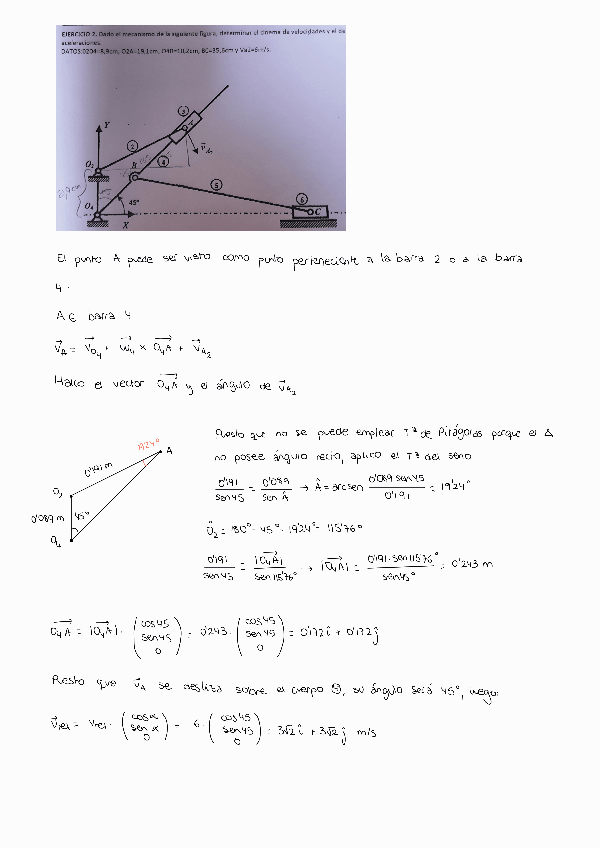 EJERCICIO 2. Dado el mecanismo de la siguiente figura, determinar el cinema de velocidades y el de
aceleraciones.
DATOS:O2O4=8,9cm, O2A=19,1cm, O4B=10,2cm, BC=35,6cm y Va2=6m/s.
Y
3
A
2
V A2
O2
B
4
8,9cm
5
6
O4
45°
C
X
El punto A puede ser visto como punto perteneciente a la barra 2 o a la barra
4.
A ∈ barra 4
V⃗A = V⃗O4 + ω⃗4 × O4A⃗ + V⃗A2
Hallo el vector O4A⃗ y el ángulo de V⃗A2
Puesto que no se puede emplear Tª de Pitágoras porque el Δ
no posee ángulo recto, aplico el Tª del seno
19'24°
A
0'191 m
O2
0'089 m
45°
O4
0'191 / sen45 = 0'089 / sen Â → Â = arcsen 0'089 sen45 / 0'191 = 19'24°
Ô2 = 180° - 45° - 19'24° = 115'76°
0'191 / sen45 = |O4A⃗| / sen115'76° → |O4A⃗| = 0'191·sen115'76° / sen45° = 0'243 m
O4A⃗ = |O4A⃗| · (cos45 sen45 0) = 0'243 · (cos45 sen45 0) = 0'172 î + 0'172 ĵ
Puesto que V⃗A se desliza sobre el cuerpo 4, su ángulo será 45°, luego:
V⃗rel = Vrel · (cosα sen α 0) = 6 · (cos45 sen45 0) = 3√2 î + 3√2 ĵ m/s